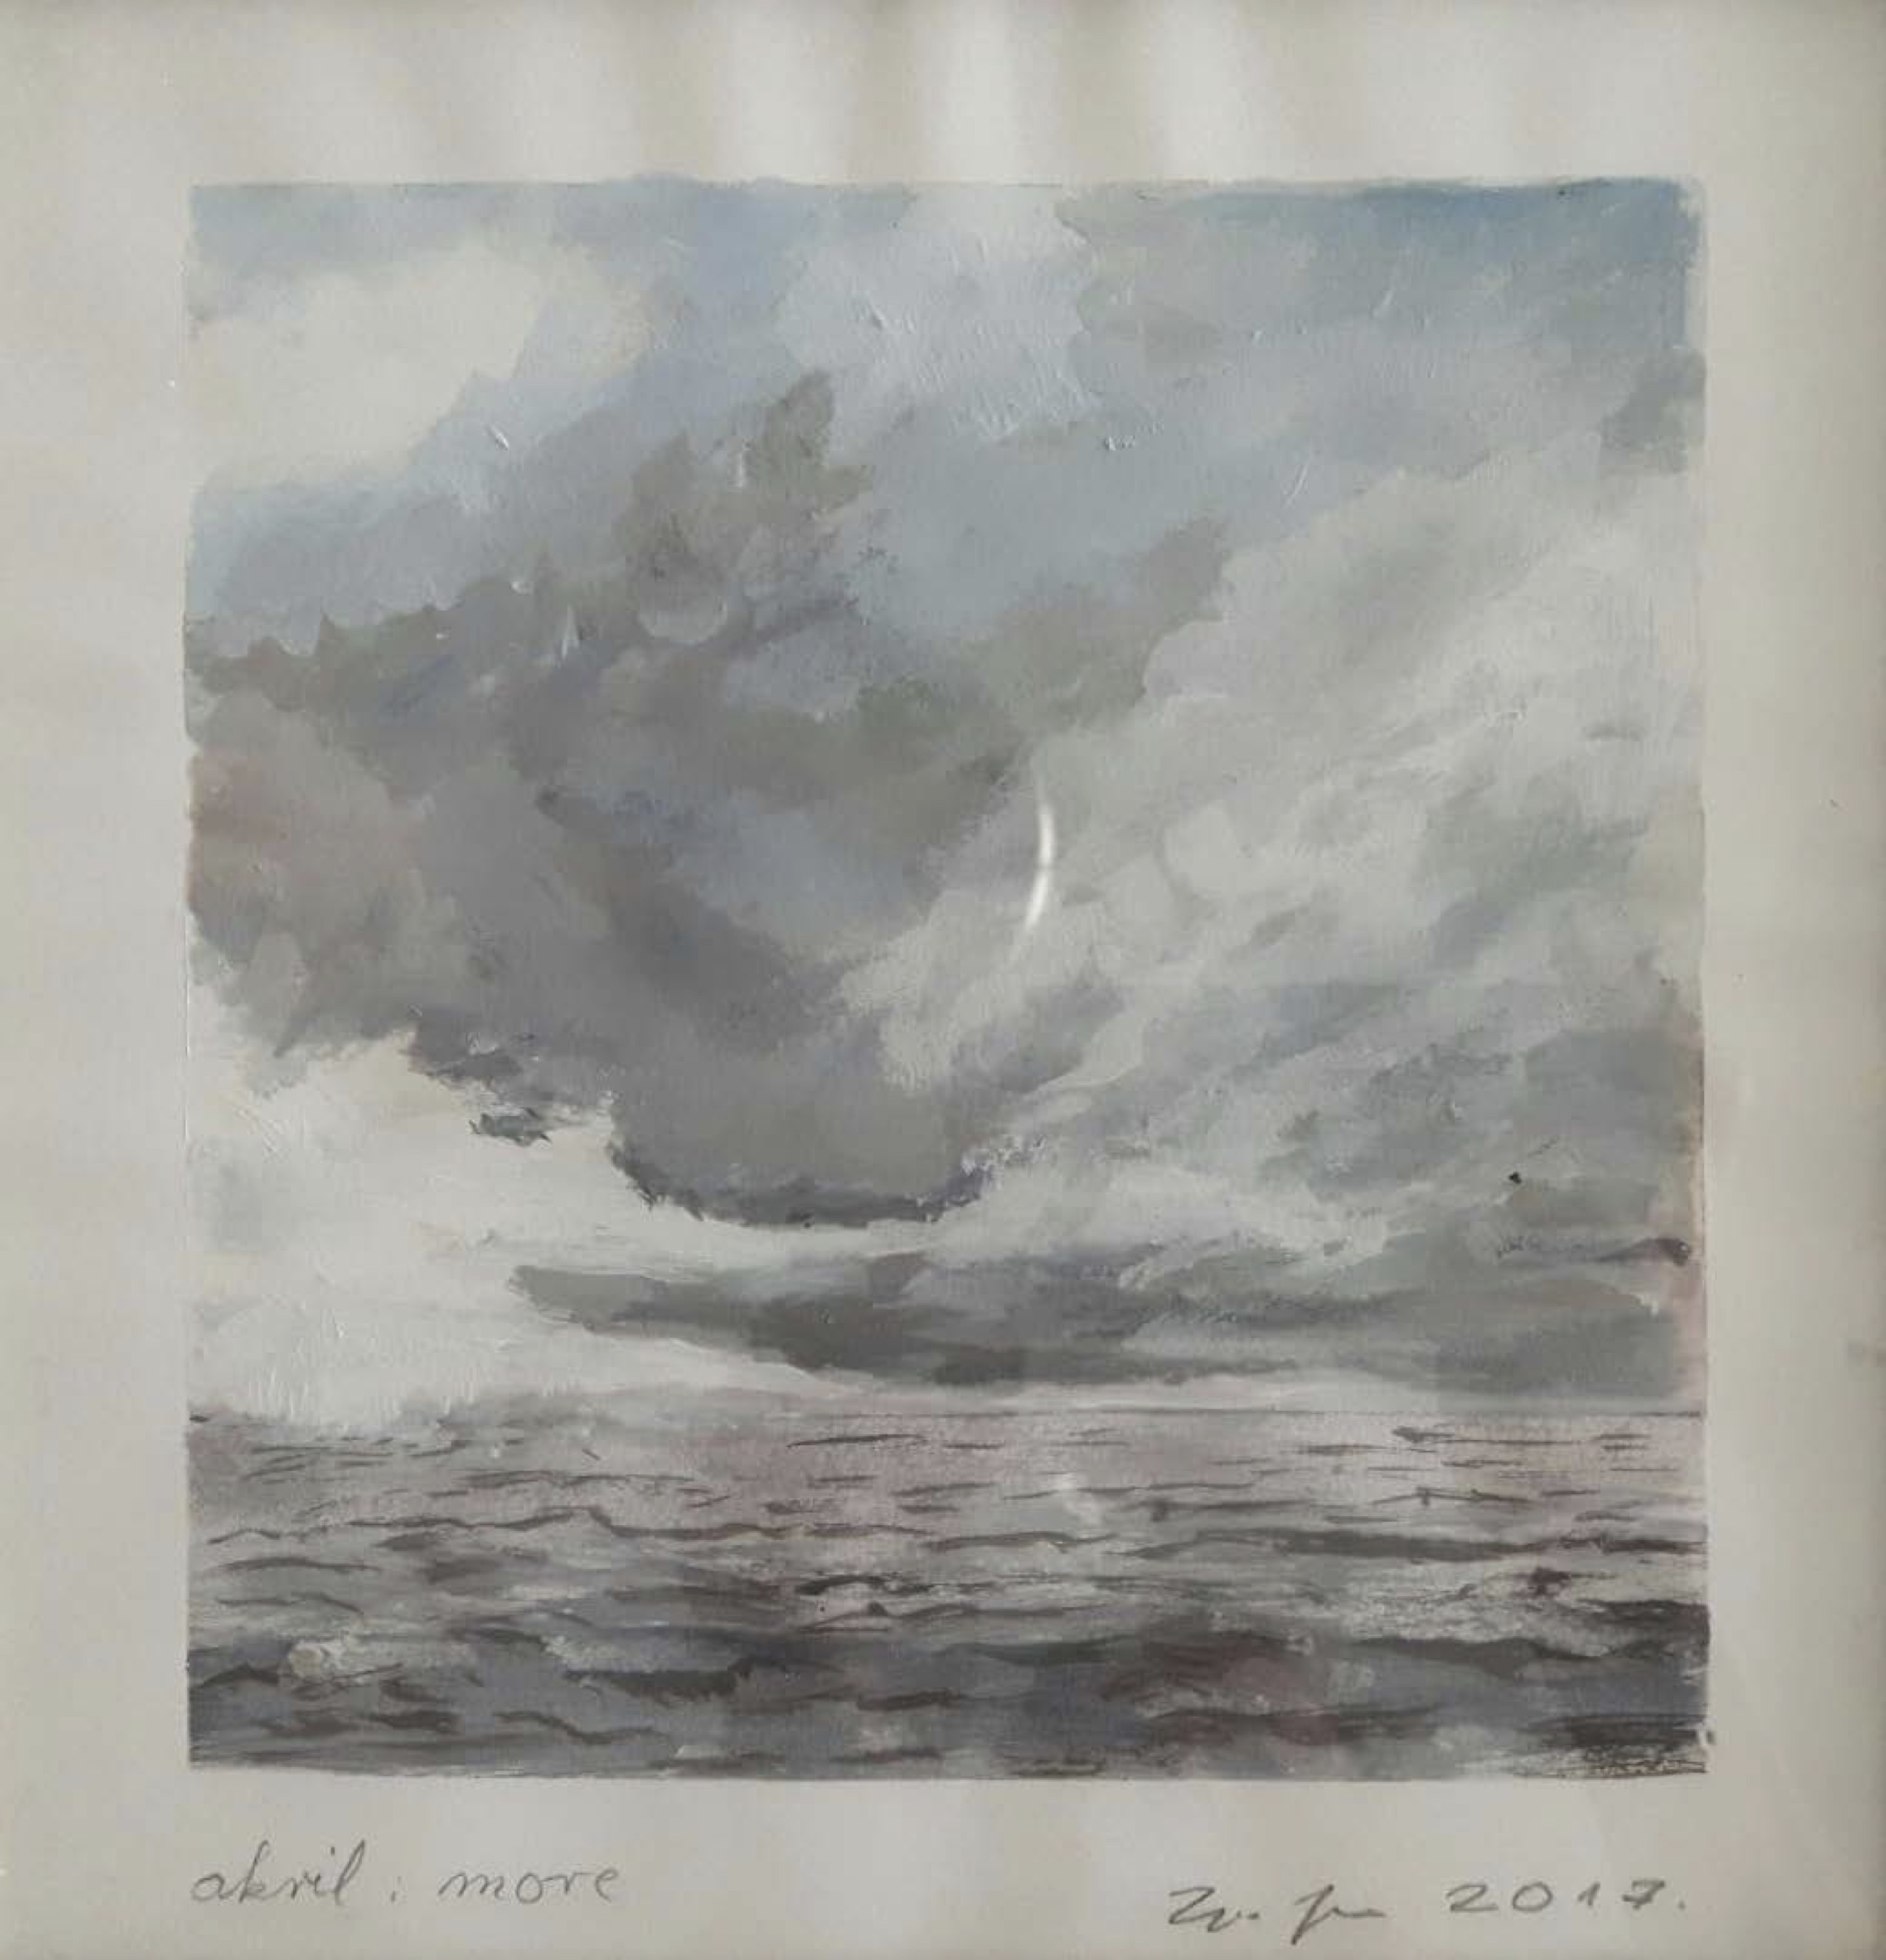 akril : more
2017.